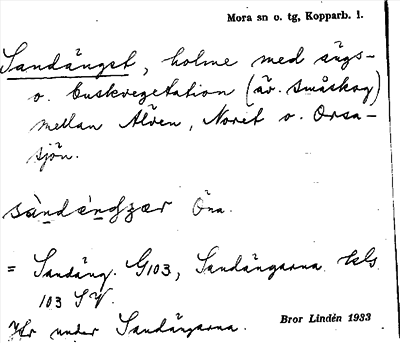 Mora sn o. tg, Kopparb. l.
Sandänget, holme med ängs-
o. buskvegetation (äv. småskog)
mellan Älven, Noret o. Orsa-
sjön.
Öna.
= Sandäng. G103, Sandängarna kls
103 SV.
Hr under Sandängarna.
Bror Lindén 1933